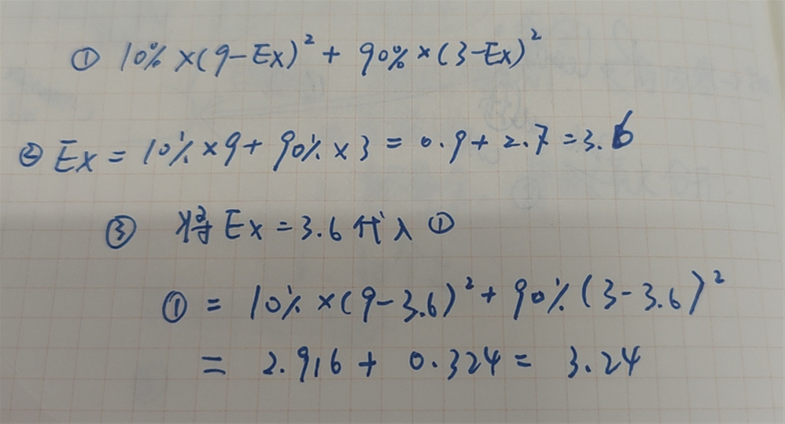 ① 10% ×(9-Ex)² + 90% ×(3-Ex)²
② Ex = 10% ×9+ 90% × 3 = 0.9 + 2.7 = 3.6
③ 将 Ex = 3.6 代入 ①
① = 10% ×(9-3.6)² + 90% (3-3.6)²
= 2.916 + 0.324 = 3.24